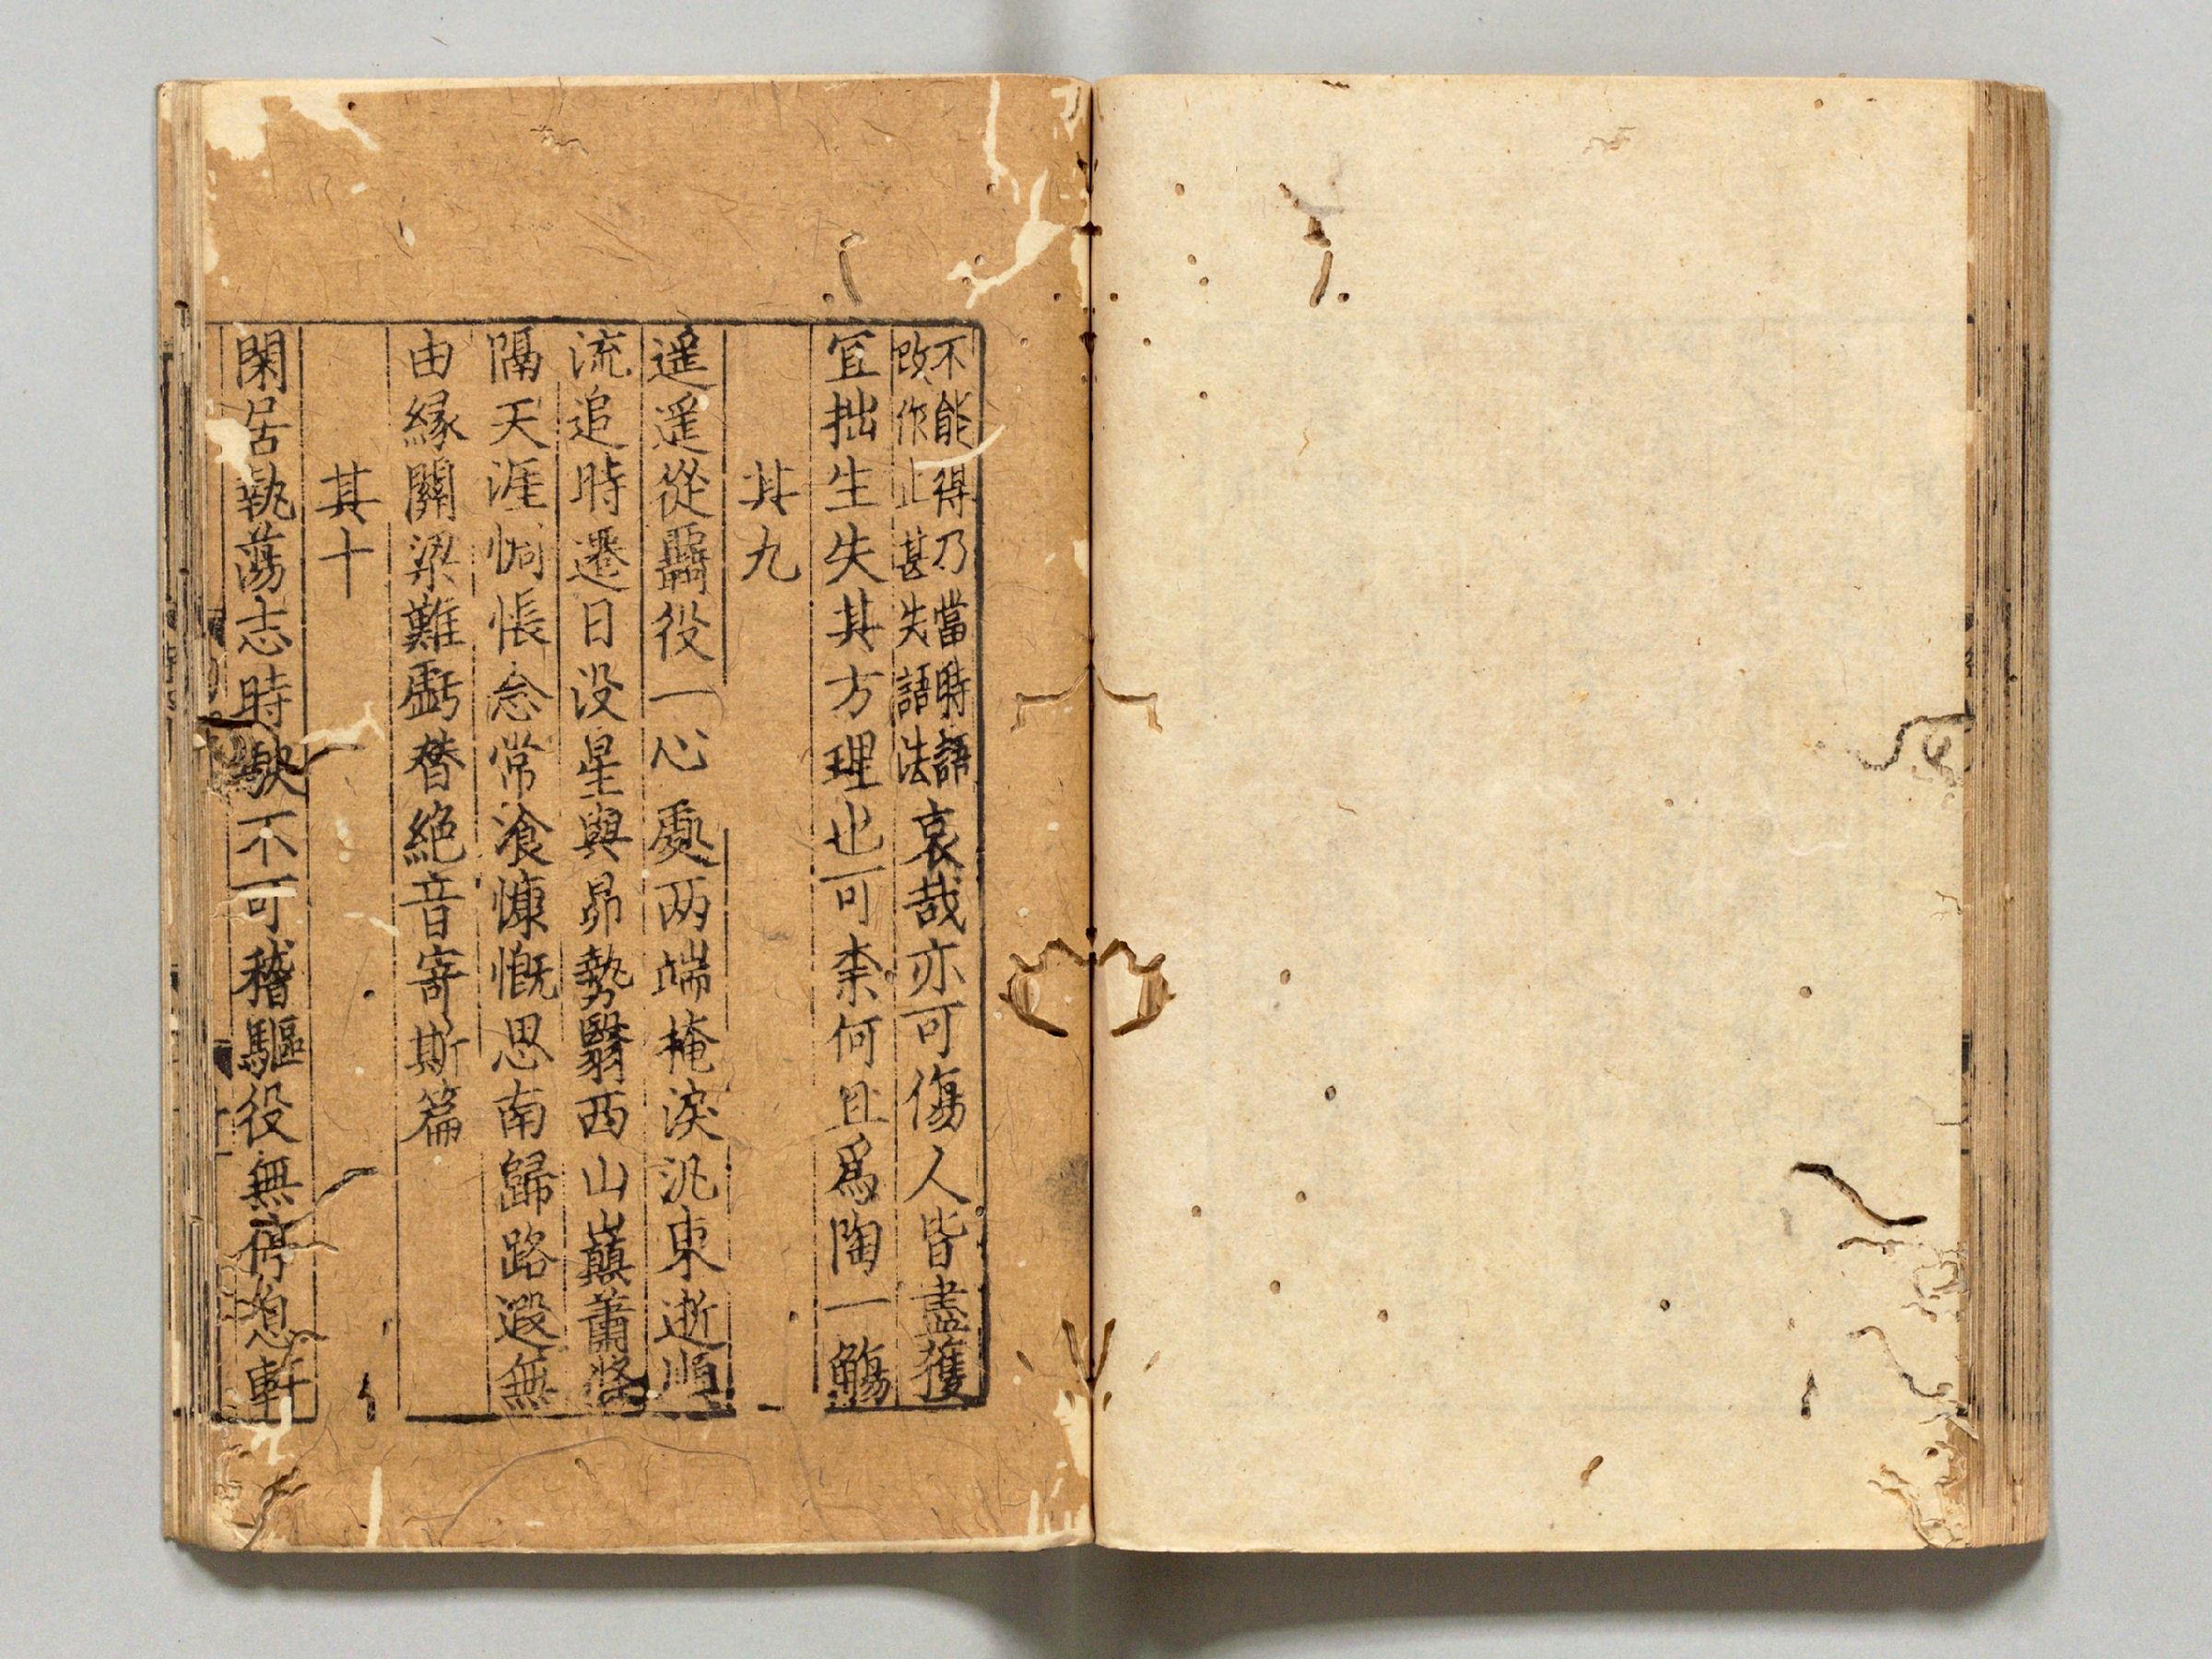 不能得乃當時語
改作止甚失語法
哀哉亦可傷人皆盡獲
宜拙生失其方理也可柰何且爲陶一觴
其九
遥遥從羈役一心處两端掩淚汎東逝順
流追時遷日没星與昴勢翳西山巔蕭條
隔天涯惆悵念常飡慷慨思南歸路遐無
由縁關梁難虧替絶音寄斯篇
其十
閑居執蕩志時駛不可稽驅役無停息軒